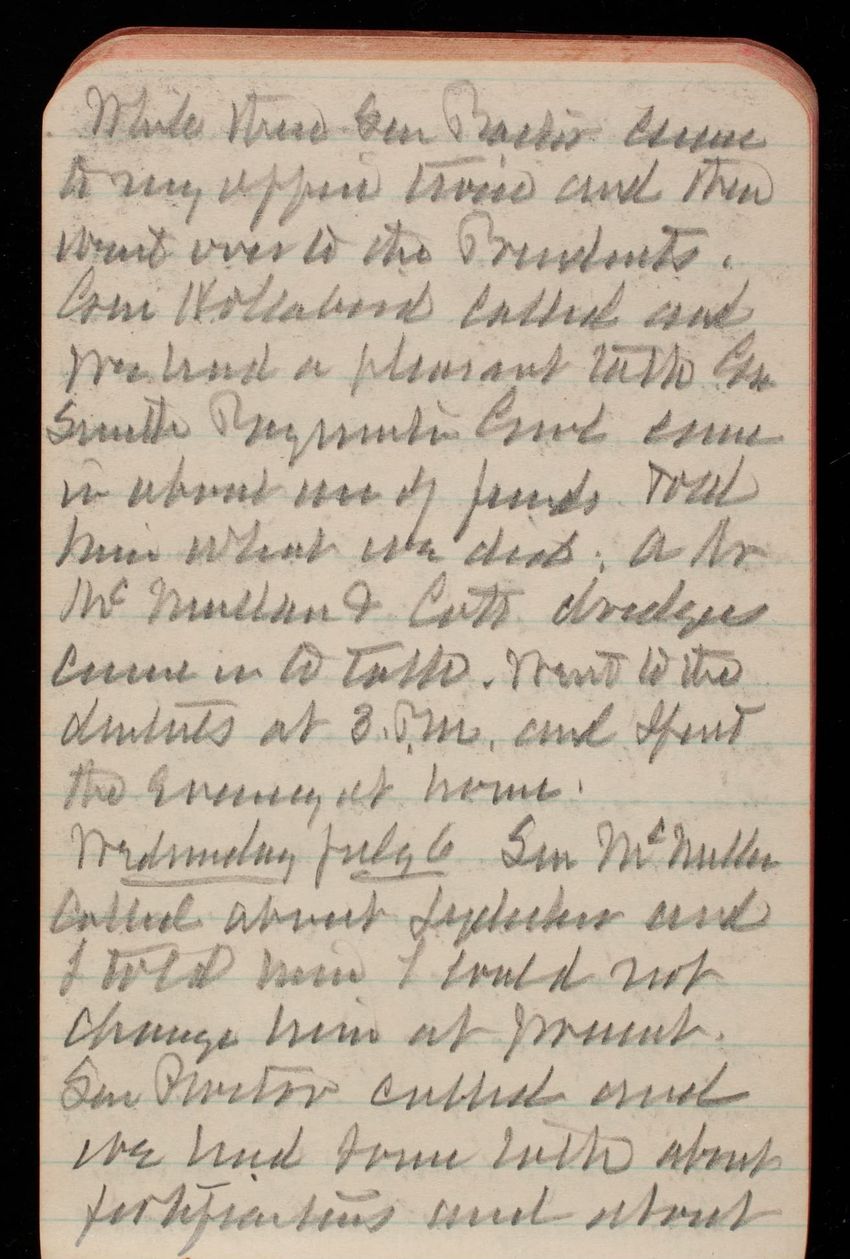 While there Sen Proctor came
to my office twice and then
went over to the Presidents.
Com called and
we had a pleasant talk Gen
Smith Paymaster Genl came
in about use of funds Told
him what we did. A Mr
McMullan & Cots dredges
came in to talk. Went to the
dentists at 3 P.M. and spent
the Evening at home.
Wednesday July 6 Sen McMillan
Called about and
I told him I could not
change him at present.
Sen Proctor called and
we had some talk about
fortifications and about